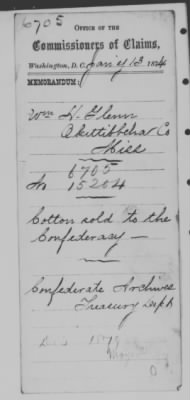 6705
OFFICE OF THE
Commissioners of Claims,
Washington, D.C., Jan'y 13 1874
MEMORANDUM:
Wm H. Glenn
Oktibbeha Co
Miss
6705
No 15204
Cotton sold to the
Confederacy —
Confederate Archives
Treasury Dept